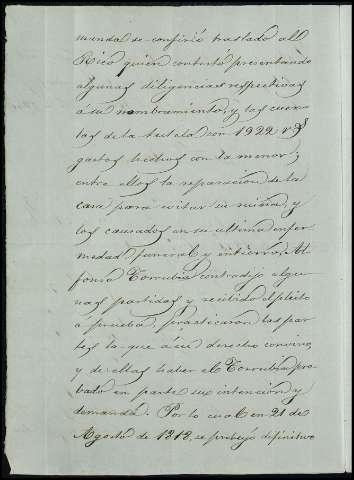 manda se confirió traslado al
Rico quien contestó presentando
algunas diligencias respectivas
á su nombramiento, y las cuen-
tas de la tutela con 1922 rs
gastos hechos con la menor,
entre ellos la reparacion de la
casa para evitar su ruina, y
los causados en su ultima enfer-
medad, funeral y entierro. Al-
fonsa Torrubia contradijo algu-
nas partidas y recibido el pleito
á prueba, practicaron las par-
tes la que á su derecho convino,
y de ellas haber el Torrubia pro-
bado en parte su intencion y
demanda. Por lo cual en 21 de
Agosto de 1818, se proveyó definitivo